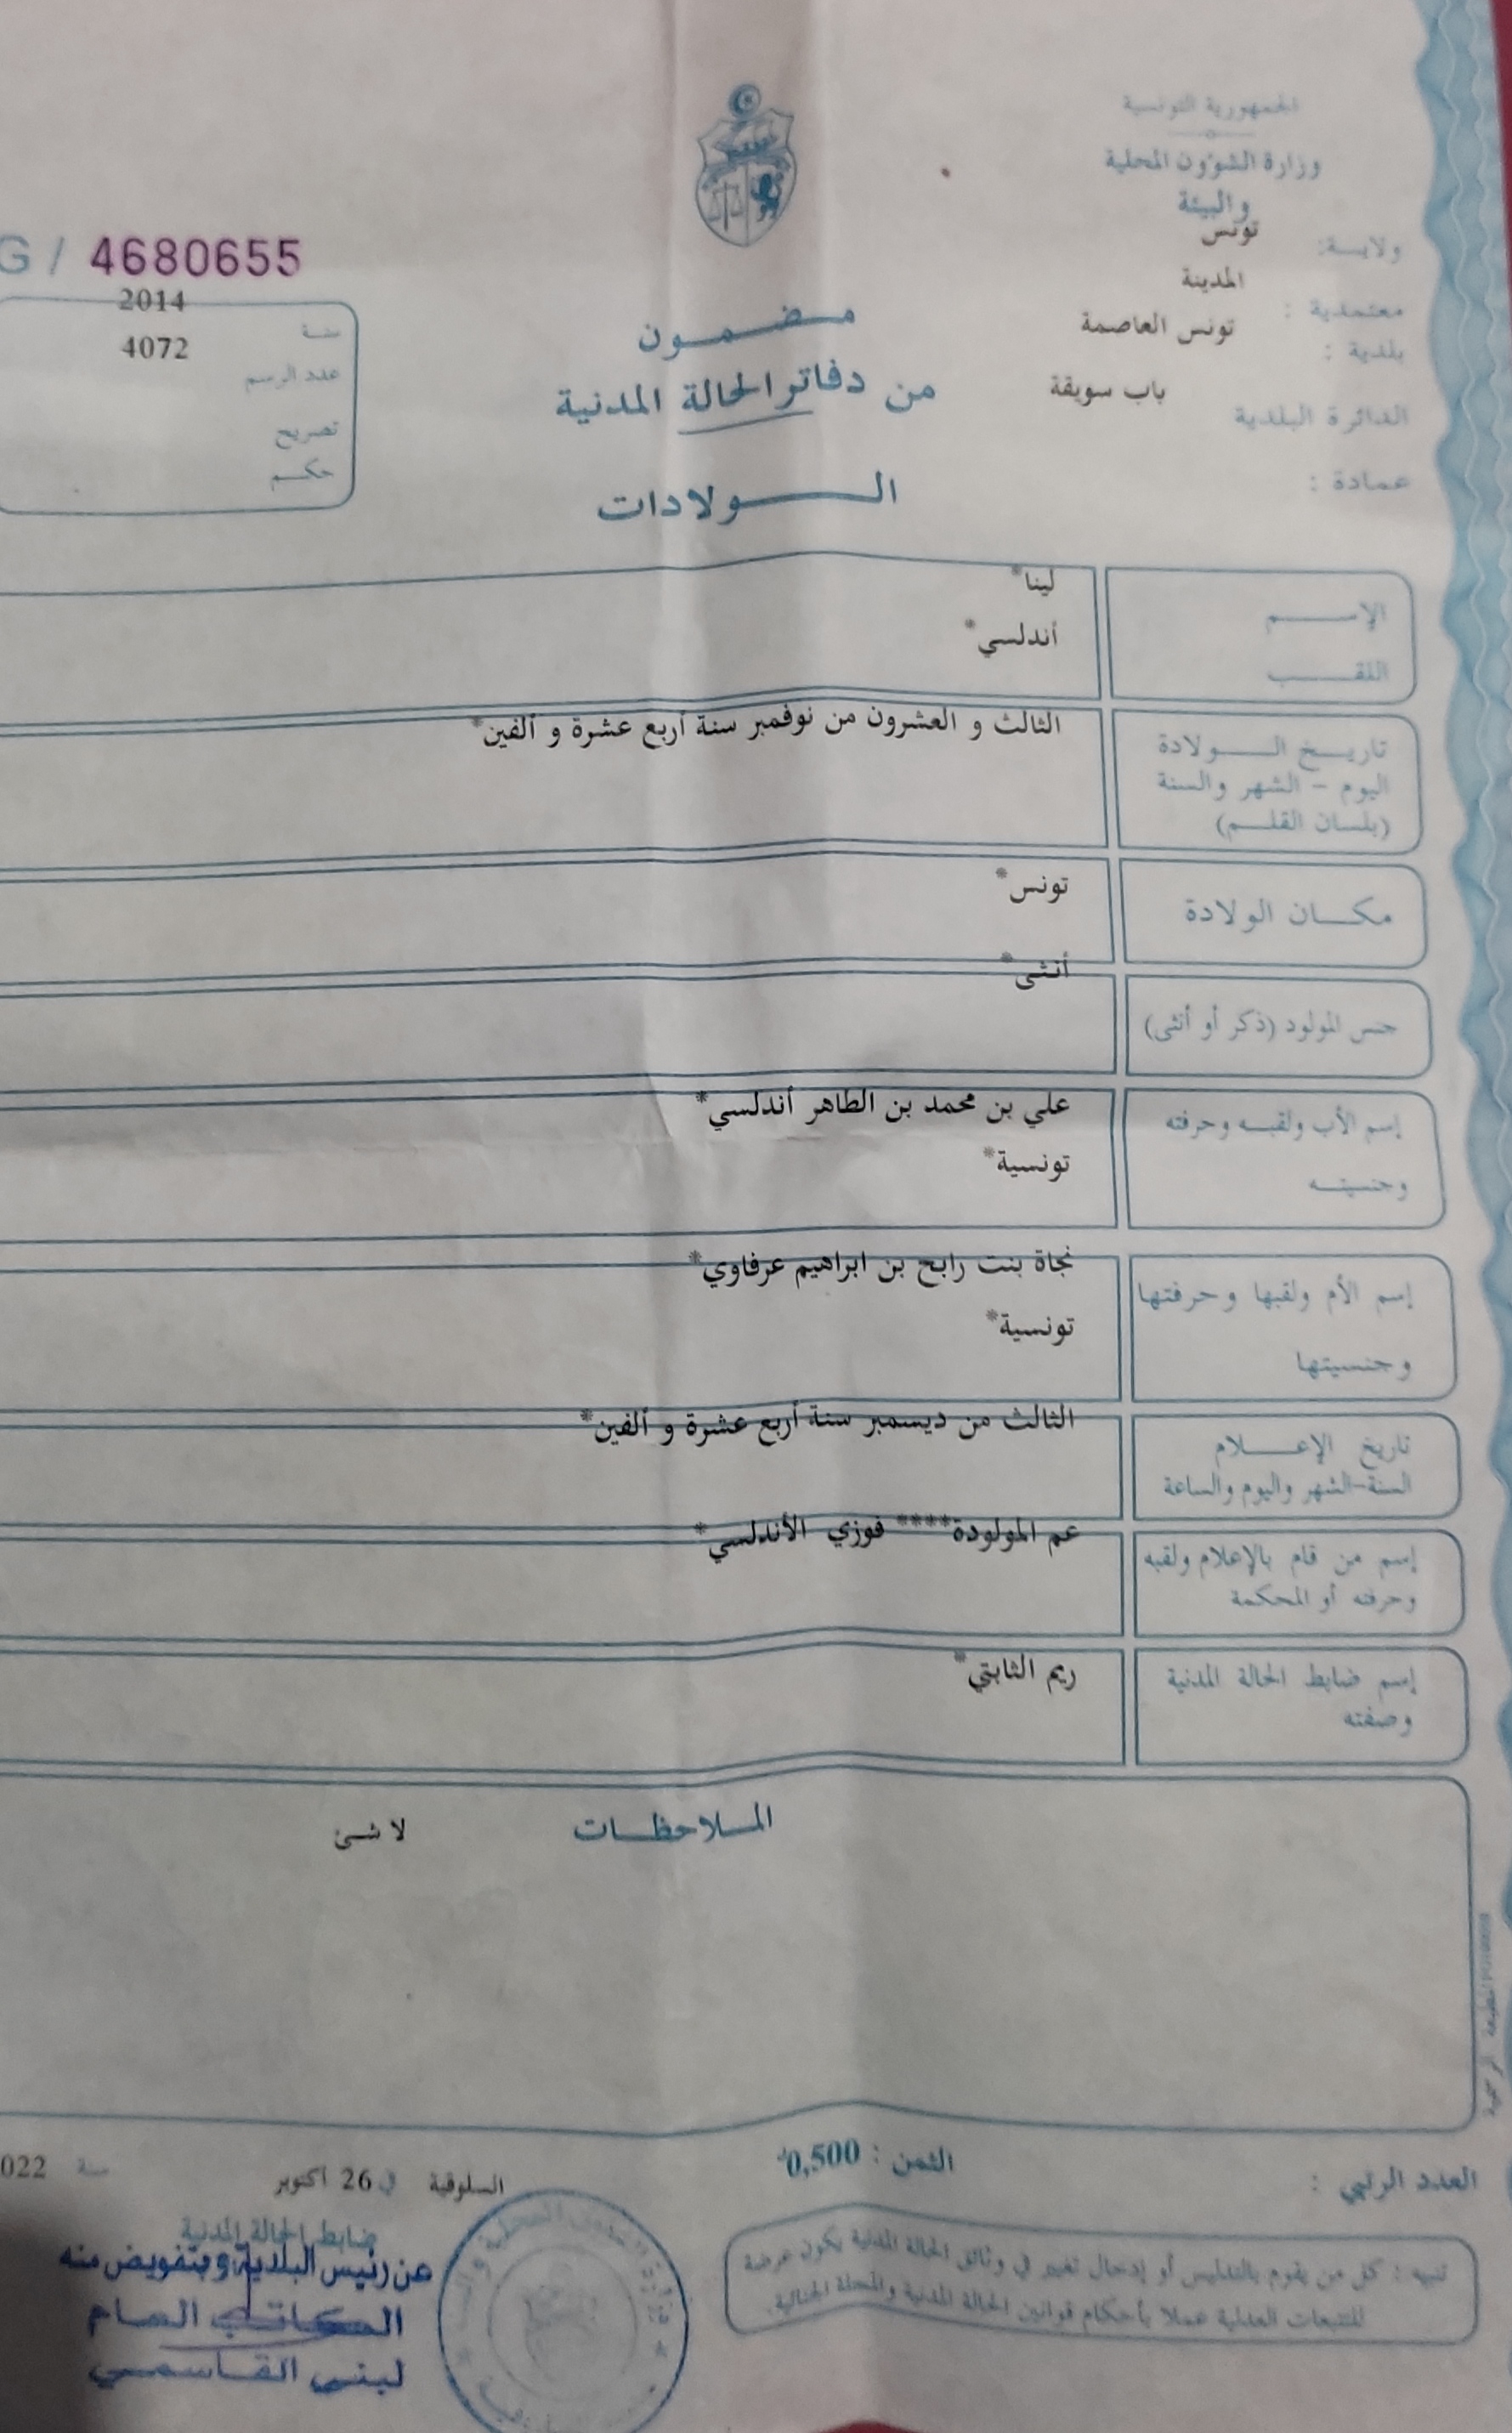 الجمهورية التونسية
وزارة الشؤون المحلية
والبيئة
ولايـــة: تونس
معتمدية : المدينة
بلدية : تونس العاصمة
الدائرة البلدية باب سويقة
عمادة :
G / 4680655
سنة 2014
عدد الرسم 4072
تصريح
حكم
مضمون
من دفاتر الحالة المدنية
الولادات
الإسم لينا*
اللقب أندلسي*
تاريخ الولادة الثالث و العشرون من نوفمبر سنة أربع عشرة و ألفين*
اليوم - الشهر والسنة
(بلسان القلم)
مكان الولادة تونس*
جنس المولود (ذكر أو أنثى) أنثى*
إسم الأب ولقبه وحرفته علي بن محمد بن الطاهر أندلسي*
وجنسيته تونسية*
إسم الأم ولقبها وحرفتها نجاة بنت رابح بن ابراهيم عرفاوي*
وجنسيتها تونسية*
تاريخ الإعلام الثالث من ديسمبر سنة أربع عشرة و ألفين*
السنة-الشهر واليوم والساعة
إسم من قام بالإعلام ولقبه عم المولودة**** فوزي الأندلسي*
وحرفته أو المحكمة
إسم ضابط الحالة المدنية ريم الثابتي*
وصفته
الملاحظات لا شئ
المطبعة الرسمية
العدد الرتبي :
الثمن : 0,500د
السلوقية في 26 اكتوبر سنة 022
ضابط الحالة المدنية
عن رئيس البلدية وبتفويض منه
الكاتب العام
لبنى القاسمي
تنبيه : كل من يقوم بالتدليس أو إدخال تغيير في وثائق الحالة المدنية يكون عرضة
للتتبعات العدلية عملا بأحكام قوانين الحالة المدنية والمجلة الجنائية.